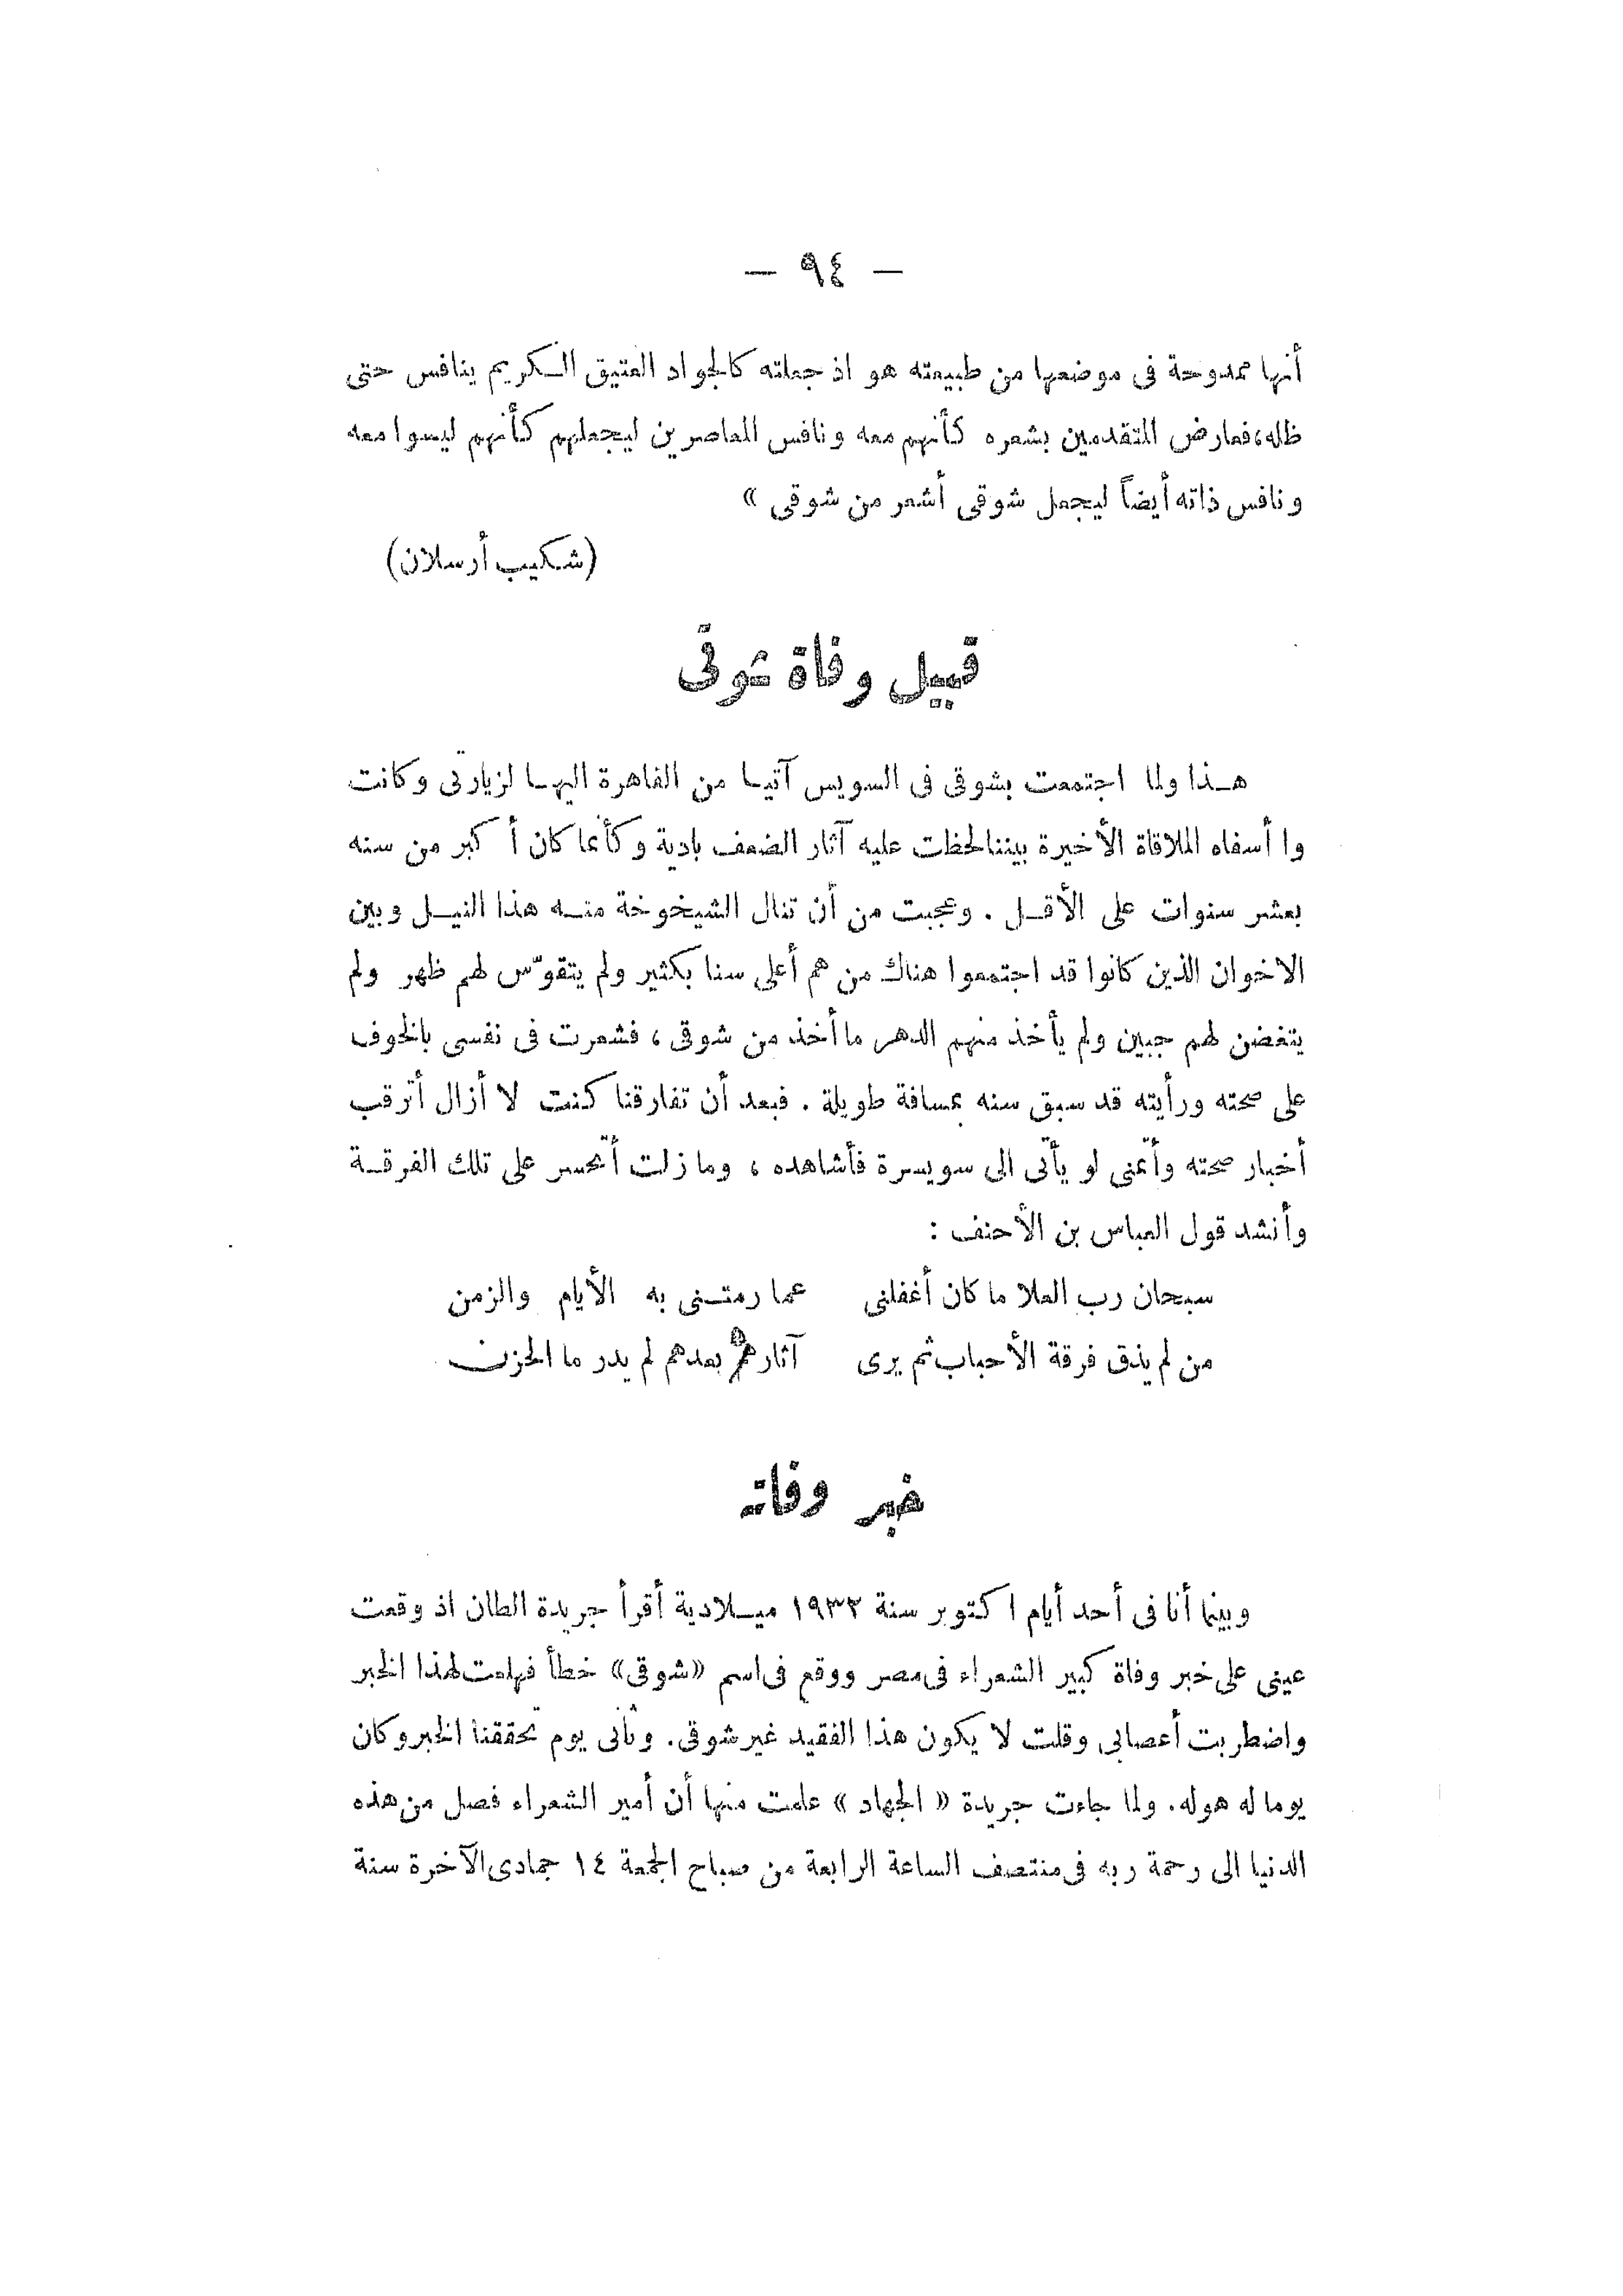 — ٩٤ —
أنها ممدوحة فى موضعها من طبيعته هو اذ جعلته كالجواد العتيق الكريم ينافس حتى
ظله، فعارض المتقدمين بشعره كأنهم معه ونافس المعاصرين ليجعلهم كأنهم ليسوا معه
ونافس ذاته أيضاً ليجعل شوقى أشعر من شوقى »
(شكيب أرسلان)
قبيل وفاة شوقى
هذا ولما اجتمعت بشوقى فى السويس آتيا من القاهرة اليها لزيارتى وكانت
وا أسفاه الملاقاة الأخيرة بيننا لحظت عليه آثار الضعف بادية وكأنما كان أكبر من سنه
بعشر سنوات على الأقل . وعجبت من أن تنال الشيخوخة منه هذا النيل وبين
الاخوان الذين كانوا قد اجتمعوا هناك من هم أعلى سنا بكثير ولم يتقوّس لهم ظهر ولم
يتغضن لهم جبين ولم يأخذ منهم الدهر ما أخذ من شوقى ، فشعرت فى نفسى بالخوف
على صحته ورأيته قد سبق سنه بمسافة طويلة . فبعد أن تفارقنا كنت لا أزال أترقب
أخبار صحته وأتمنى لو يأتى الى سويسرة فأشاهده ، وما زلت أتحسر على تلك الفرقة
وأنشد قول العباس بن الأحنف :
سبحان رب العلا ما كان أغفلنى عما رمتنى به الأيام والزمن
من لم يذق فرقة الأحباب ثم يرى آثارهم بعدهم لم يدر ما الحزن
خبر وفاته
وبينما أنا فى أحد أيام اكتوبر سنة ١٩٣٣ ميلادية أقرأ جريدة الطان اذ وقعت
عينى على خبر وفاة كبير الشعراء فى مصر ووقع فى اسم «شوقى» خطأ فهلعت لهذا الخبر
واضطربت أعصابى وقلت لا يكون هذا الفقيد غير شوقى. وثانى يوم تحققنا الخبر وكان
يوما له هوله. ولما جاءت جريدة « الجهاد » علمت منها أن أمير الشعراء فصل من هذه
الدنيا الى رحمة ربه فى منتصف الساعة الرابعة من صباح الجمعة ١٤ جمادى الآخرة سنة